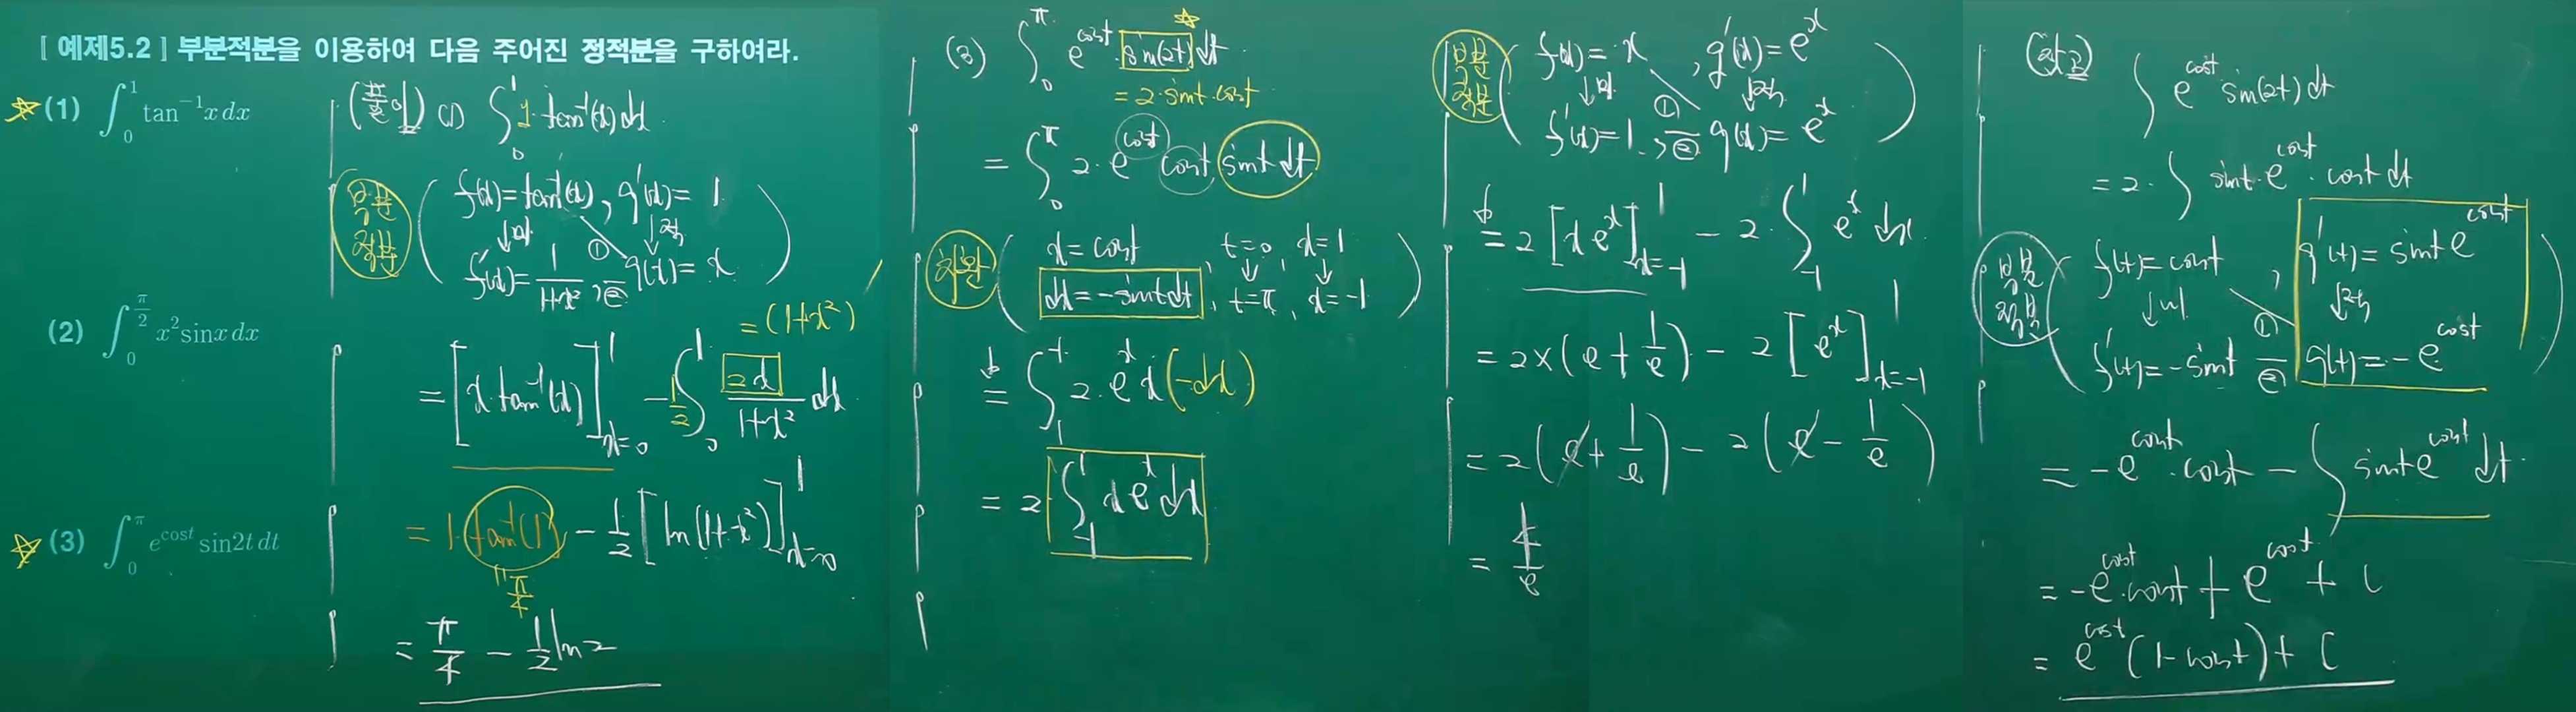 [ 예제5.2 ] 부분적분을 이용하여 다음 주어진 정적분을 구하여라.
☆(1) ∫_0^1 tan^{-1}x dx
(2) ∫_0^{π/2} x^2 sinx dx
☆(3) ∫_0^π e^{cost} sin2t dt
(풀이) (1) ∫_0^1 1·tan^{-1}(x)dx
부분적분 ( f(x)=tan^{-1}(x), g'(x)=1
↓미 ① ↓적
f'(x)=1/(1+x^2), ② g(x)=x )
=(1+x^2)'
= [x·tan^{-1}(x)]_{x=0}^1 - 1/2 ∫_0^1 2x/(1+x^2) dx
= 1·tan^{-1}(1) - 1/2 [ln(1+x^2)]_{x=0}^1
" π/4
= π/4 - 1/2 ln2
(3) ∫_0^π e^{cost}·sin(2t)dt ☆
= 2·sint·cost
= ∫_0^π 2·e^{cost} cost sint dt
치환 ( x=cost, t=0, x=1
↓ ↓
dx=-sint dt, t=π, x=-1 )
= ∫_1^{-1} 2·e^x x(-dx)
= 2 ∫_{-1}^1 xe^x dx
부분적분 ( f(x)=x, g'(x)=e^x
↓미 ① ↓적
f'(x)=1, ② g(x)=e^x )
= 2[xe^x]_{x=-1}^1 - 2·∫_{-1}^1 e^x dx
= 2×(e+1/e) - 2[e^x]_{x=-1}^1
= 2(e+1/e) - 2(e-1/e)
= 4/e
(참고) ∫ e^{cost} sin(2t)dt
= 2·∫ sint·e^{cost}·cost dt
부분적분 ( f(t)=cost, g'(t)=sint e^{cost}
↓미 ① ↓적
f'(t)=-sint ② g(t)=-e^{cost} )
= -e^{cost}·cost - ∫ sint e^{cost} dt
= -e^{cost}·cost + e^{cost} + C
= e^{cost}(1-cost) + C